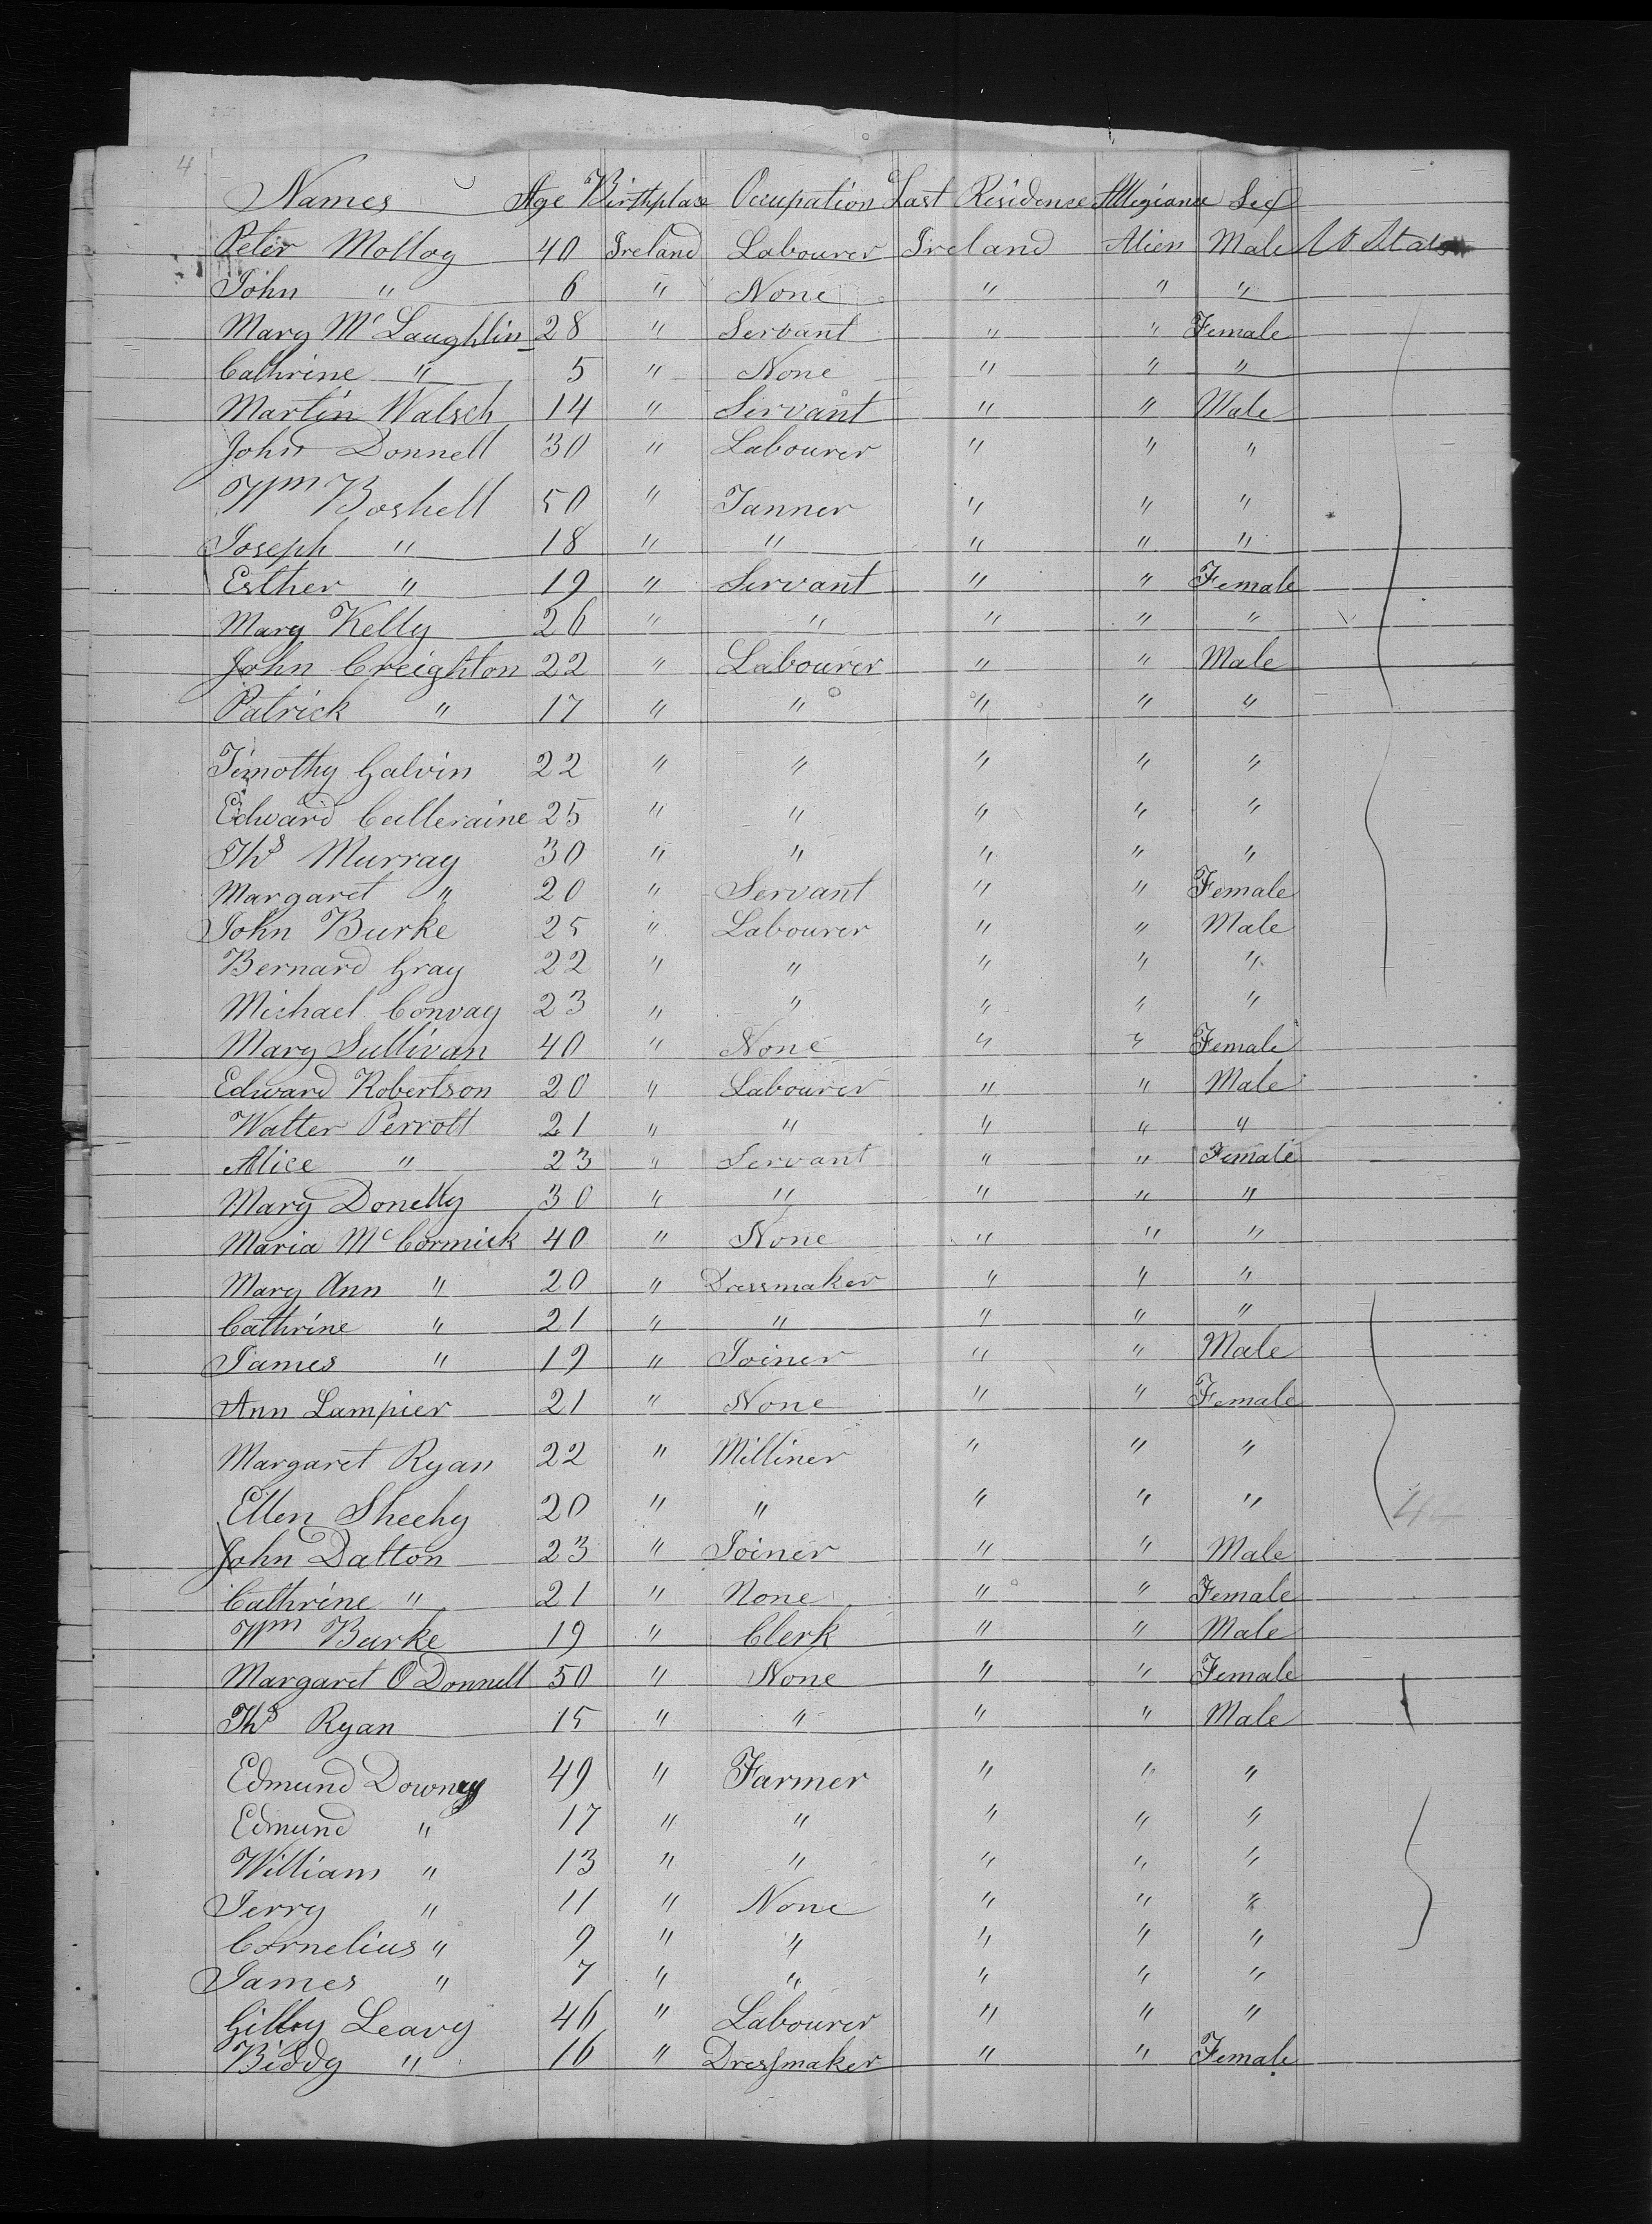 4
Names Age Birthplace Occupation Last Residence Allegiance Sex
Peter Molloy 40 Ireland Labourer Ireland Alien Male U States
John " 6 " None " " "
Mary Mc Laughlin 28 " Servant " " Female
Cathrine " 5 " None " " "
Martin Walsch 14 " Servant " " Male
John Donnell 30 " Labourer " " "
Wm Boshell 50 " Tanner " " "
Joseph " 18 " " " " "
Esther " 19 " Servant " " Female
Mary Kelly 26 " " " " "
John Creighton 22 " Labourer " " Male
Patrick " 17 " " " " "
Timothy Galvin 22 " " " " "
Edward Culleraine 25 " " " " "
Ths Murray 30 " " " " "
Margaret " 20 " Servant " " Female
John Burke 25 " Labourer " " Male
Bernard Gray 22 " " " " "
Michael Convay 23 " " " " "
Mary Sullivan 40 " None " " Female
Edward Robertson 20 " Labourer " " Male
Walter Perrott 21 " " " " "
Alice " 23 " Servant " " Female
Mary Donelly 30 " " " " "
Maria Mc Cormick 40 " None " " "
Mary Ann " 20 " Dressmaker " " "
Cathrine " 21 " " " " "
James " 19 " Joiner " " Male
Ann Lampier 21 " None " " Female
Margaret Ryan 22 " Milliner " " "
Ellen Sheehy 20 " " " " "
John Dalton 23 " Joiner " " Male
Cathrine " 21 " None " " Female
Wm Burke 19 " Clerk " " Male
Margaret O Donnell 50 " None " " Female
Ths Ryan 15 " " " " Male
Edmund Downey 49 " Farmer " " "
Edmund " 17 " " " " "
William " 13 " " " " "
Jerry " 11 " None " " "
Cornelius " 9 " " " " "
James " 7 " " " " "
Gilby Leavy 46 " Labourer " " "
Biddy " 16 " Dressmaker " " Female